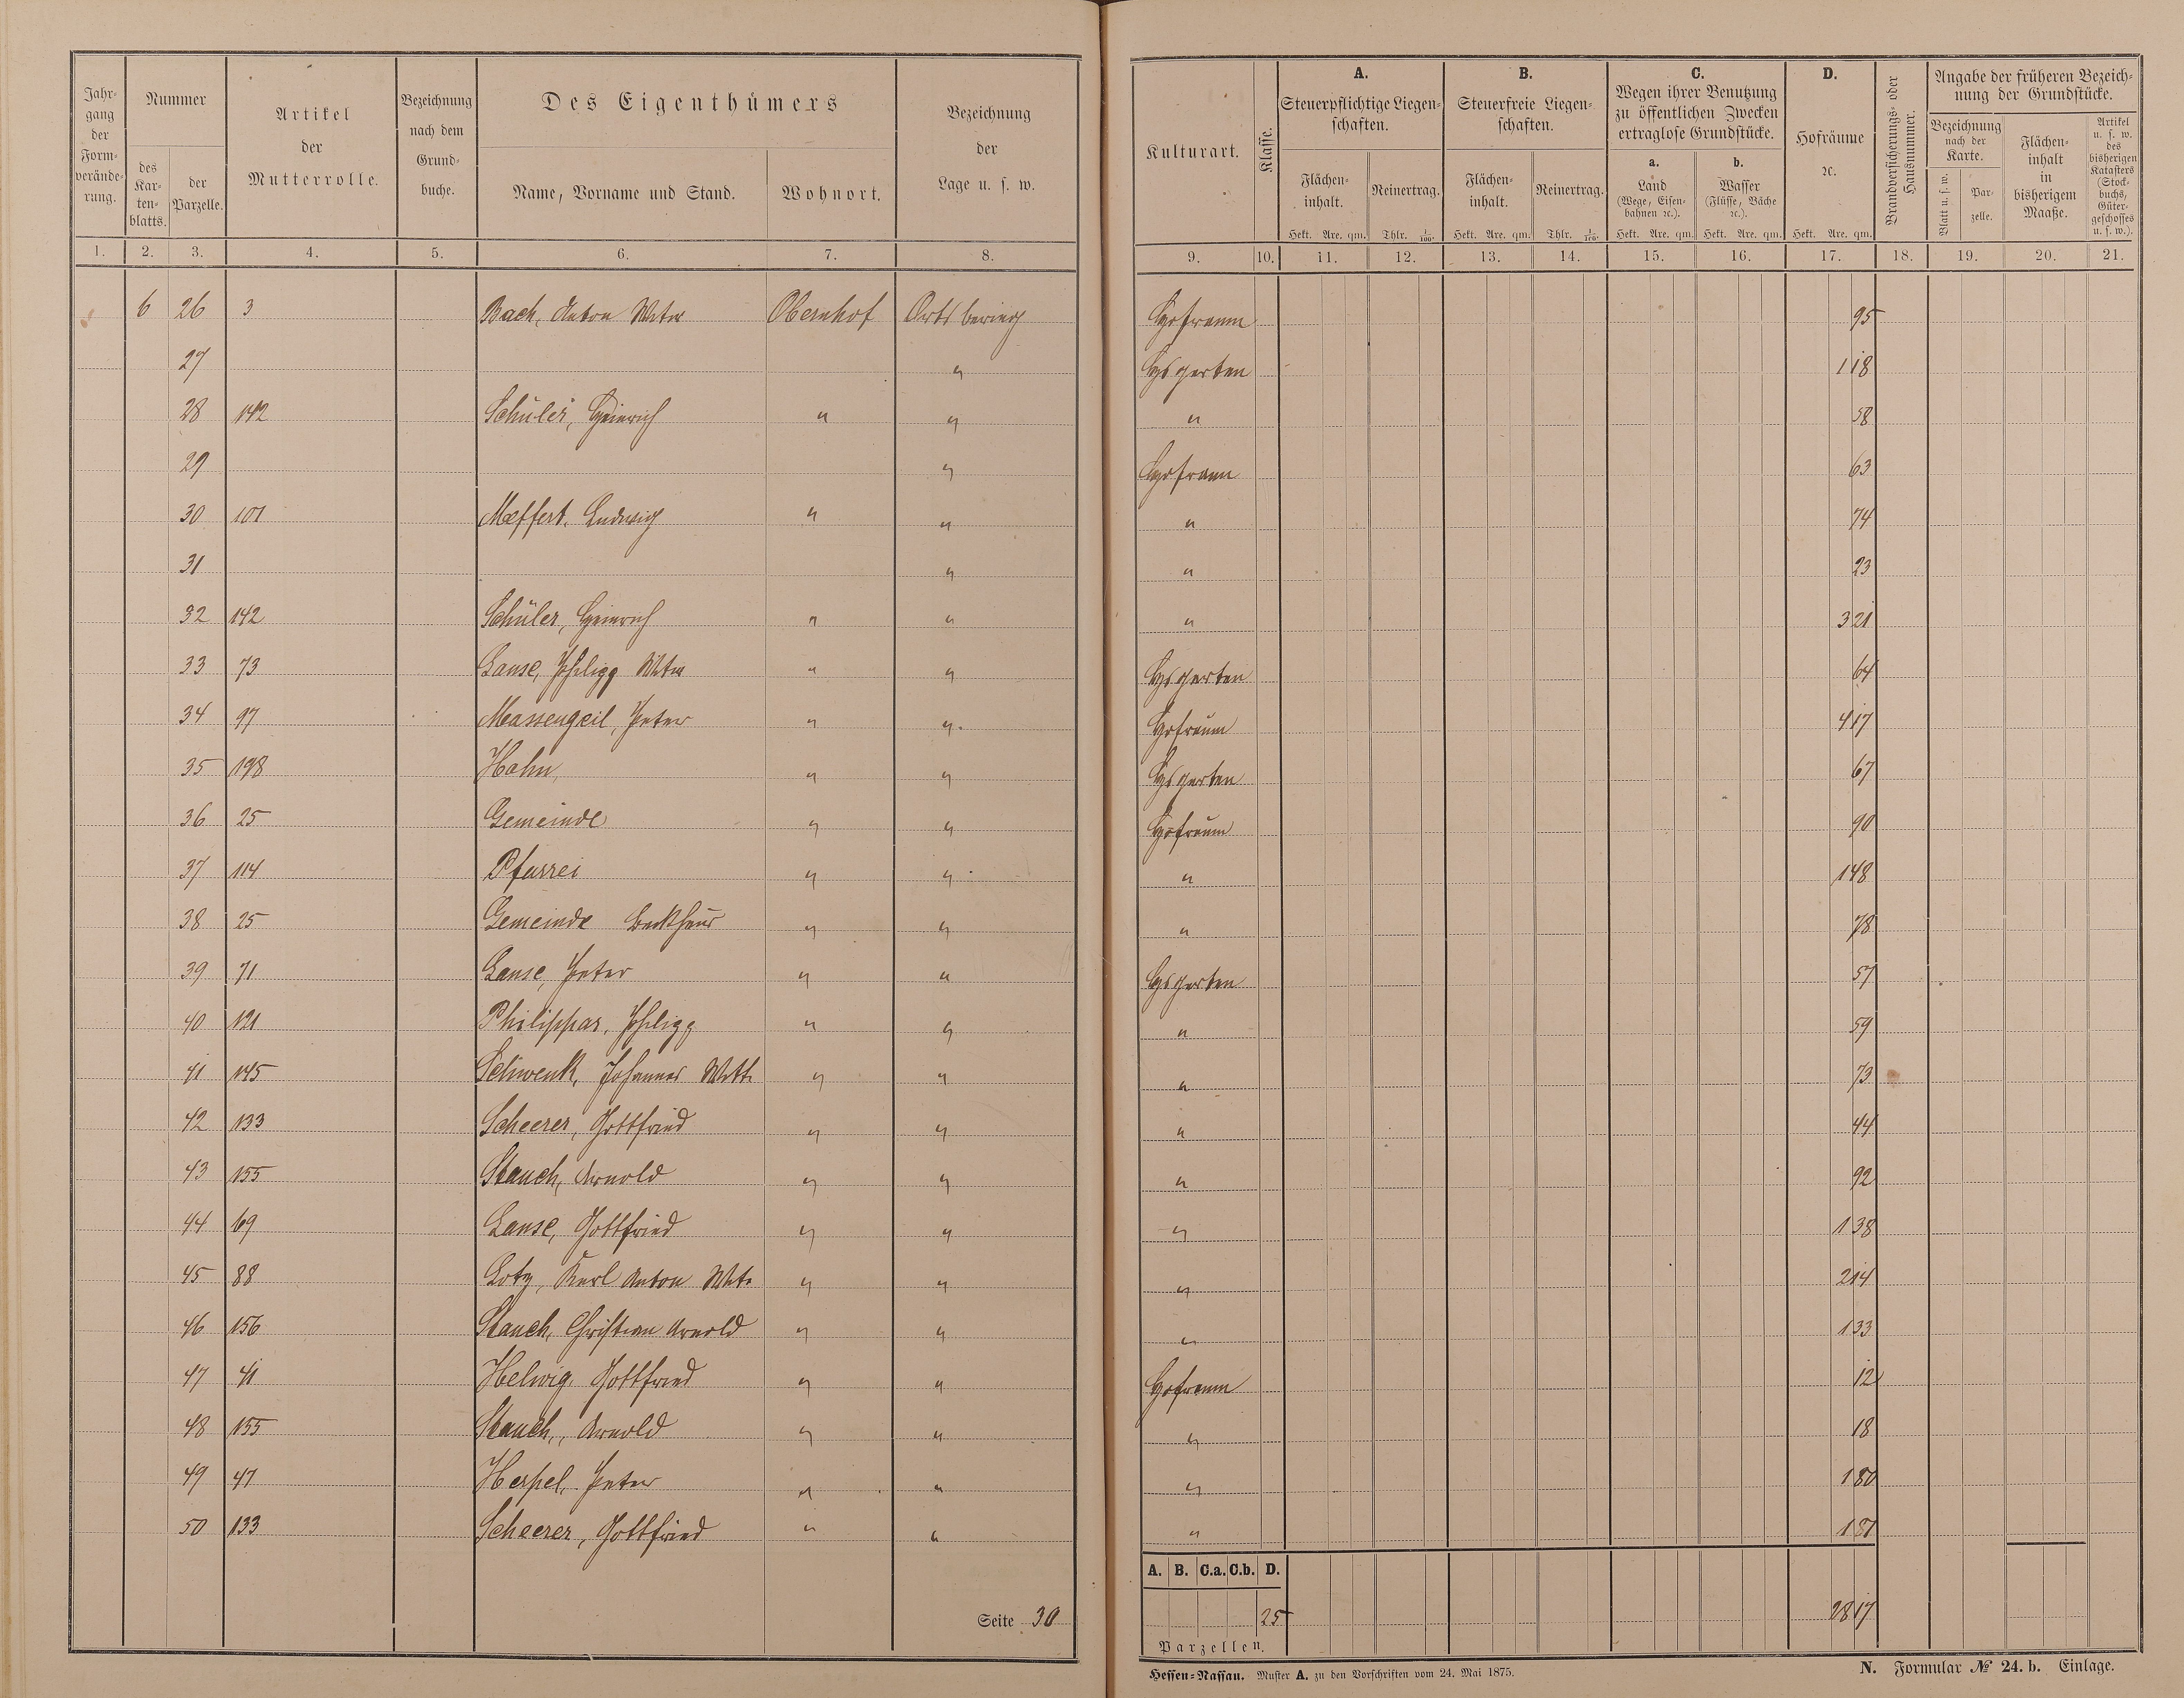 Jahrgang der Formveränderung.
Nummer
des Kartenblatts.
der Parzelle.
Artikel der Mutterrolle.
Bezeichnung nach dem Grundbuche.
Des Eigenthümers
Name, Vorname und Stand.
Wohnort.
Bezeichnung der Lage u. s. w.
1. 2. 3. 4. 5. 6. 7. 8.
Kulturart.
Klasse.
A.
Steuerpflichtige Liegenschaften.
Flächeninhalt.
Hekt. Are. qm.
Reinertrag.
Thlr. 1/100.
B.
Steuerfreie Liegenschaften.
Flächeninhalt.
Hekt. Are. qm.
Reinertrag.
Thlr. 1/100.
C.
Wegen ihrer Benutzung zu öffentlichen Zwecken ertraglose Grundstücke.
a.
Land
(Wege, Eisenbahnen ꝛc.).
Hekt. Are. qm.
b.
Wasser
(Flüsse, Bäche ꝛc.).
Hekt. Are. qm.
D.
Hofräume ꝛc.
Hekt. Are. qm.
Brandversicherungs- oder Hausnummer.
Angabe der früheren Bezeichnung der Grundstücke.
Bezeichnung nach der Karte.
Blatt u. s. w.
Parzelle.
Flächeninhalt in bisherigem Maaße.
Artikel u. s. w. des bisherigen Katasters (Stockbuchs, Gütergeschosses u. s. w.).
9. 10. 11. 12. 13. 14. 15. 16. 17. 18. 19. 20. 21.
6 26 3 Bach, Anton Wtw Obernhof Ortsbering Hofraum 95
27 " Hsgarten 118
28 142 Schüler, Heinrich " " " 58
29 " Hofraum 63
30 101 Meffert, Ludwig " " " 74
31 " " 23
32 142 Schüler, Heinrich " " " 321
33 73 Lanse, Philipp Wtw " " Hsgarten 64
34 97 Massengeil, Peter " " Hofraum 417
35 198 Hahn, " " Hsgarten 67
36 25 Gemeinde " " Hofraum 90
37 114 Pfarrei " " " 148
38 25 Gemeinde Backhaus " " " 78
39 71 Lanse, Peter " " Hsgarten 57
40 121 Philippar, Philipp " " " 59
41 145 Schwenk, Johannes Wtt. " " " 73
42 133 Scheerer, Gottfried " " " 44
43 155 Stauch, Arnold " " " 92
44 69 Lanse, Gottfried " " " 138
45 88 Lotz, Karl Anton Wtw " " " 214
46 156 Stauch, Christian Arnold " " " 133
47 41 Helwig, Gottfried " " Hofraum 12
48 155 Stauch, Arnold " " " 18
49 47 Herpel, Peter " " " 180
50 133 Scheerer, Gottfried " " " 181
A. B. C.a. C.b. D.
25 2817
Parzellen.
Seite 30
Hessen-Nassau. Muster A. zu den Vorschriften vom 24. Mai 1875.
N. Formular № 24. b. Einlage.